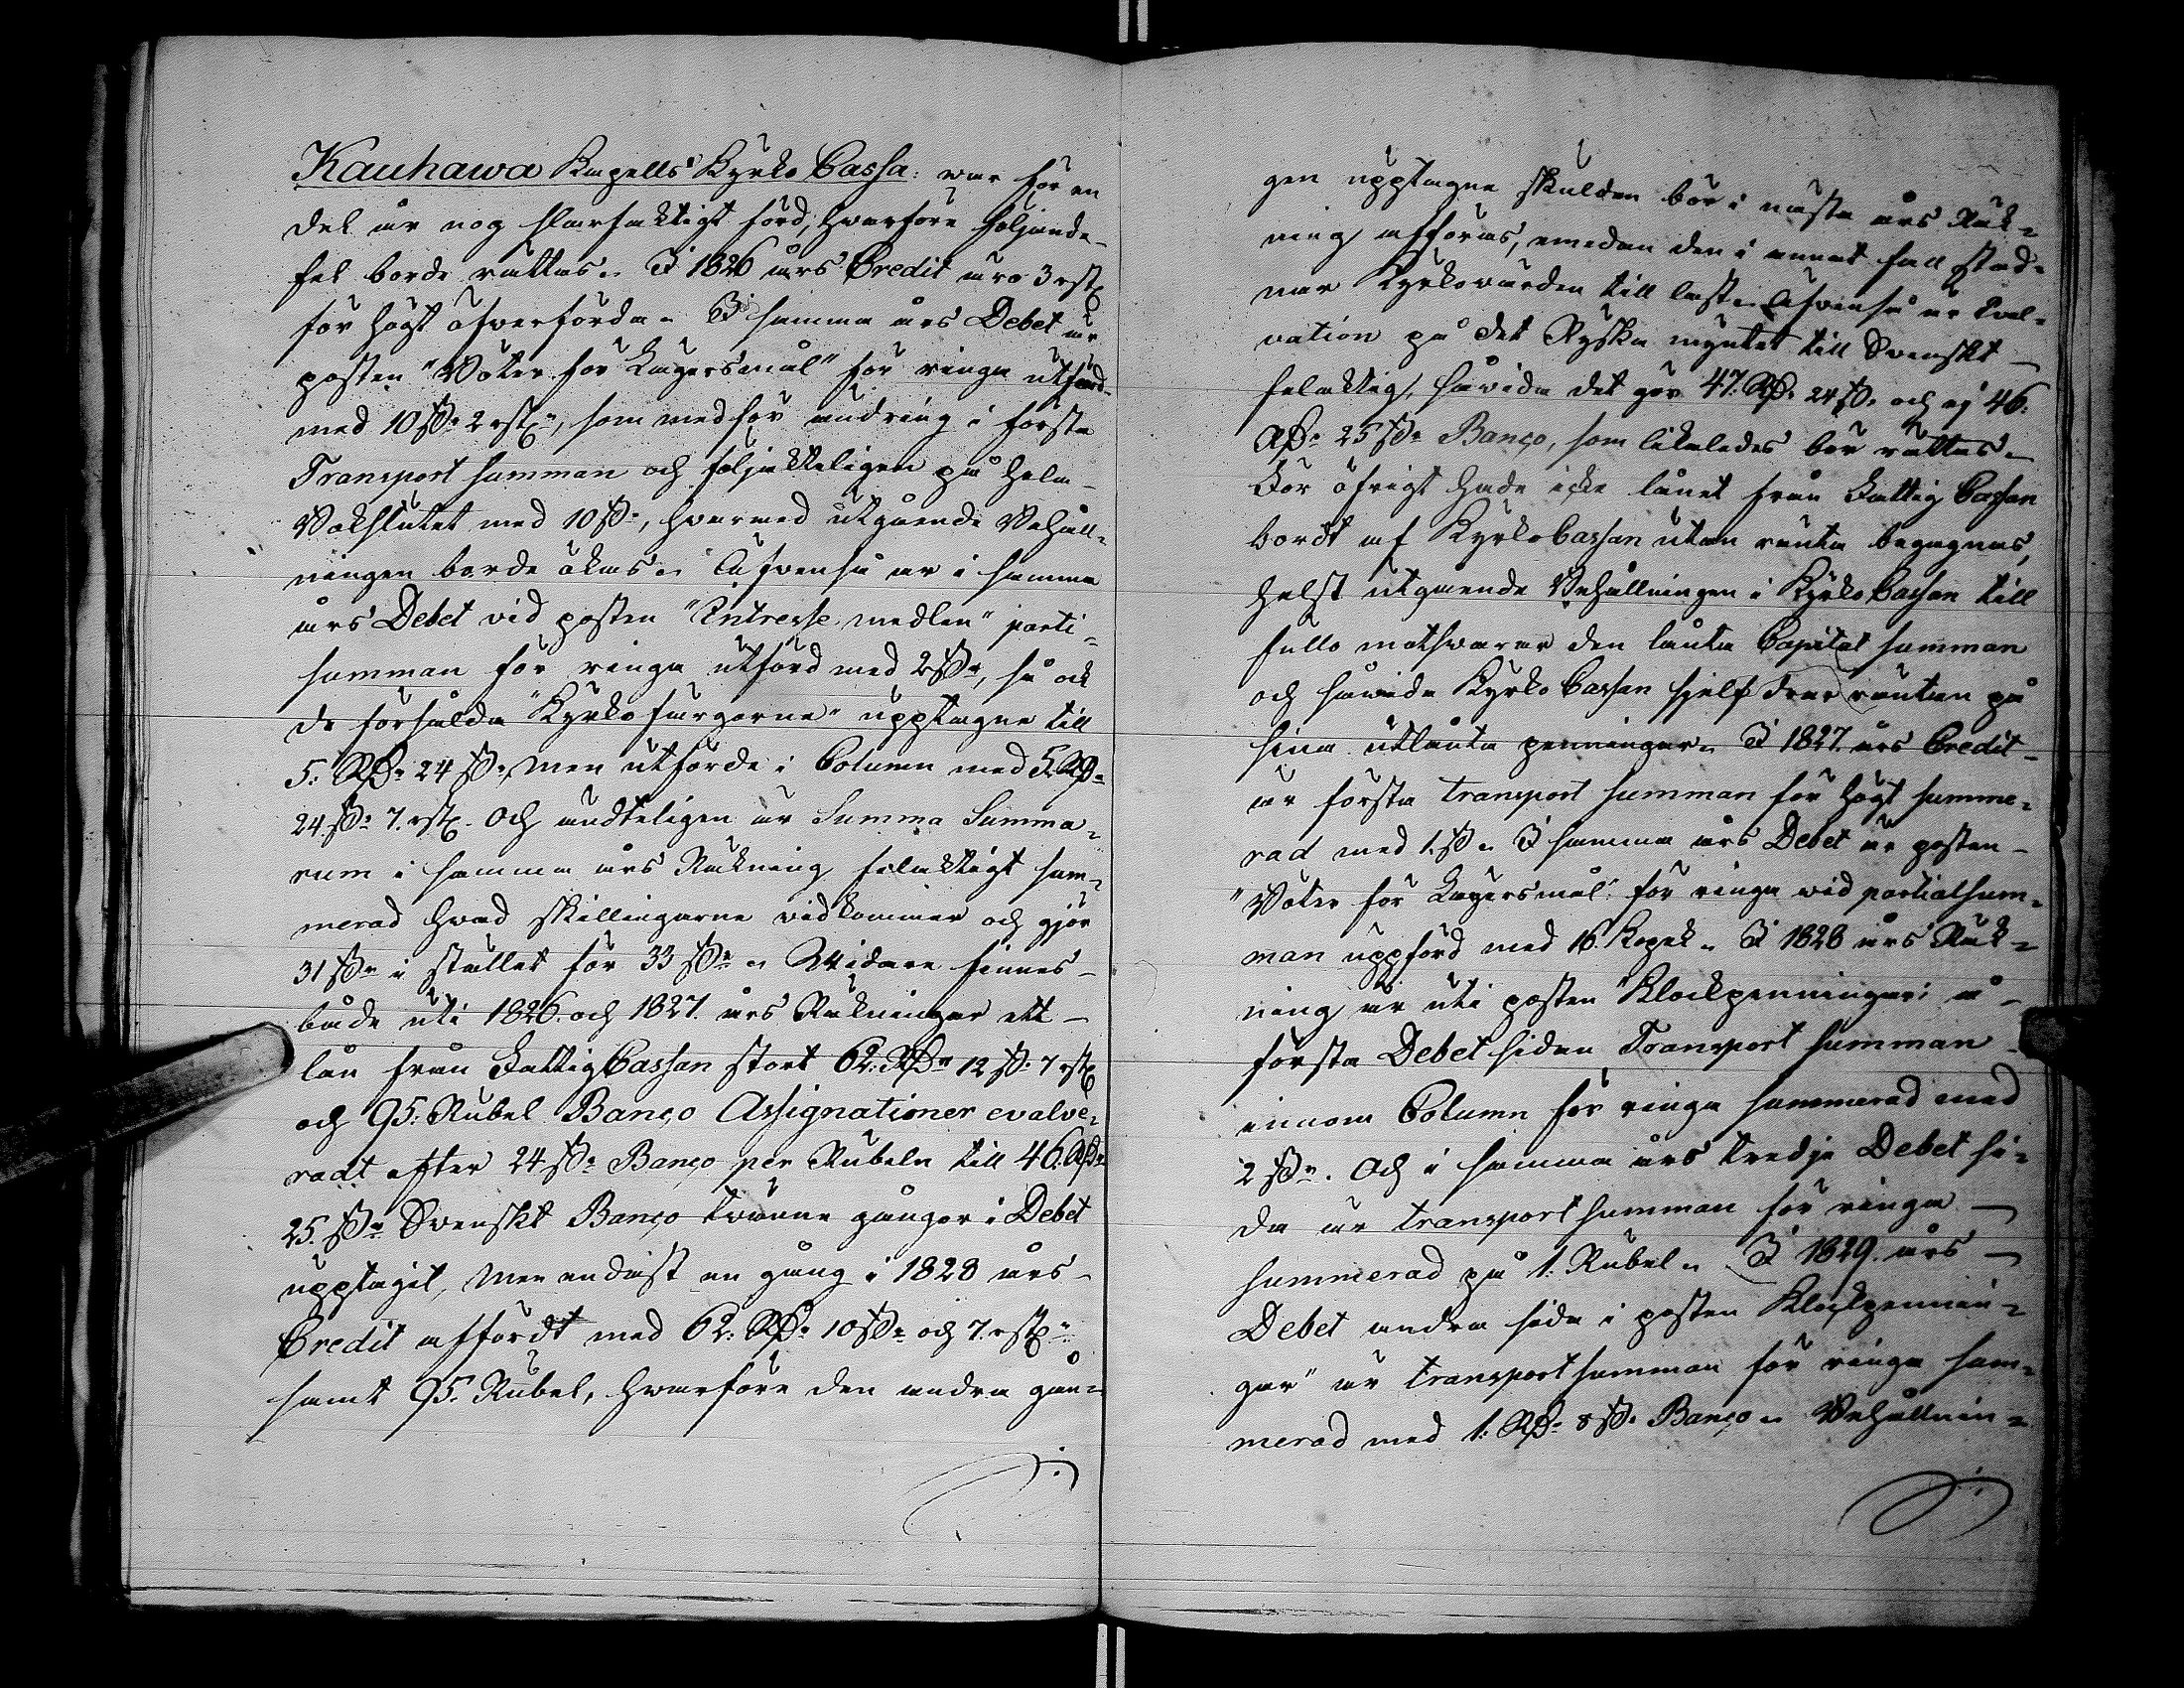 Kauhawa Kapells Kyrko Cassa: var för en
del år nog slarfaktigt förd, hvarföre följande
fel borde rättas. I 1826 års Credit äro 3 rst
för högt öfverförda. I samma års Debet är
posten "Böter för Lägersmål" för ringa utförd
med 10 ß: 2 rst:, som medför ändring i första
Transport summan och följakteligen på hela
Bokslutet med 10 ß:, hvarmed utgående Behåll-
ningen borde ökas. Äfvenså är i samma
års Debet vid posten "Intresse medlen" parti-
summan för ringa utförd med 2 ß:, så ock
de försålda "Kyrkofärgorne" upptagne till
5: RD: 24 ß:, men utförde i Column med 5. RD:
24. ß: 7. rst. Och ändteligen är Summa Summa-
rum i samma års Räkning felaktigt sum-
merad hvad skillingarne vidkommer och gjör
31 ß: i stället för 33 ß:. Widare finnes
både uti 1826. och 1827. års Räkningar ett
lån från Fattig Cassan stort 62: RD: 12 ß: 7 rst
och 95: Rubel Banco Assignationer evalve-
radt efter 24 ß: Banco per Rubeln till 46. RD:
25. ß: Svenskt Banco tvänne gånger i Debet
upptagit, men endast en gång i 1828 års
Credit affördt med 62: RD: 10 ß: och 7. rst:
samt 95. Rubel, hvarföre den andra gån-
gen upptagne skulden bör i nästa års Räk-
ning afföras, emedan den i annat fall stad-
nar Kyrkovärden till last. Äfvenså är Eval-
vation på det Ryska myntet till Svenskt
felaktig, såvida det gör 47: RD: 24 ß: och ej 46:
RD: 25 ß: Banco, som likaledes bör rättas.
För öfrigt hade icke lånet från Fattig Cassan
bordt af Kyrko Cassan utan ränta begagnas,
helst utgående Behållningen i Kyrko Cassan till
fullo motsvarar den lånta Capital summan
och såvida Kyrko Cassan sjelf drar räntan på
sina utlånta penningar. I 1827. års Credit
är första transport summan för högt summe-
rad med 1. ß. I samma års Debet är posten
"Böter för Lägersmål" för ringa vid partialsum-
man uppförd med 16. Kopek. I 1828 års Räk-
ning är uti posten "Klockpenningar" å
första Debet sidan Transport summan
innom Column för ringa summerad med
2 ß:. Och i samma års tredje Debet si-
da är transport summan för ringa
summerad på 1: Rubel. I 1829. års
Debet andra sida i posten "Klockpennin-
gar" är transport summan för ringa sum-
merad med 1: RD: 8 ß: Banco. Behållnin-